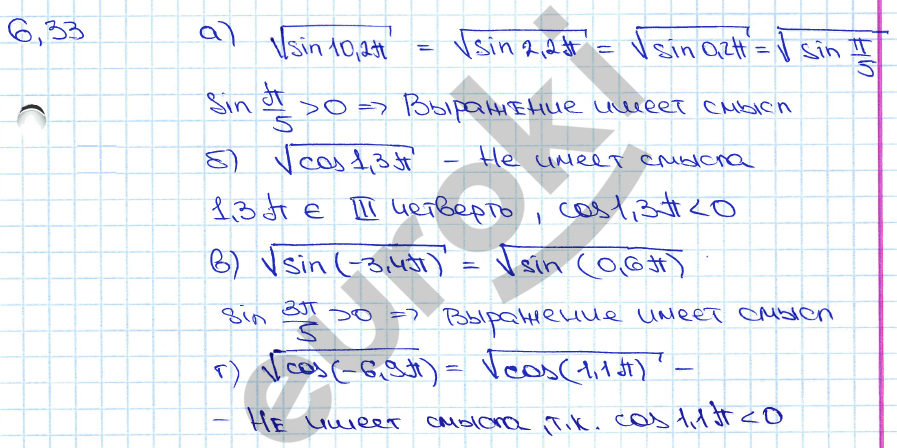 6,33 а) √sin 10,2π = √sin 2,2π = √sin 0,2π = √sin π/5
sin π/5 >0 => Выражение имеет смысл
б) √cos 1,3π - Не имеет смысла
1,3π ∈ III четверть, cos 1,3π < 0
в) √sin (-3,4π) = √sin (0,6π)
sin 3π/5 >0 => Выражение имеет смысл
г) √cos(-6,9π) = √cos(1,1π) -
- Не имеет смысла, т.к. cos 1,1π < 0
euroki